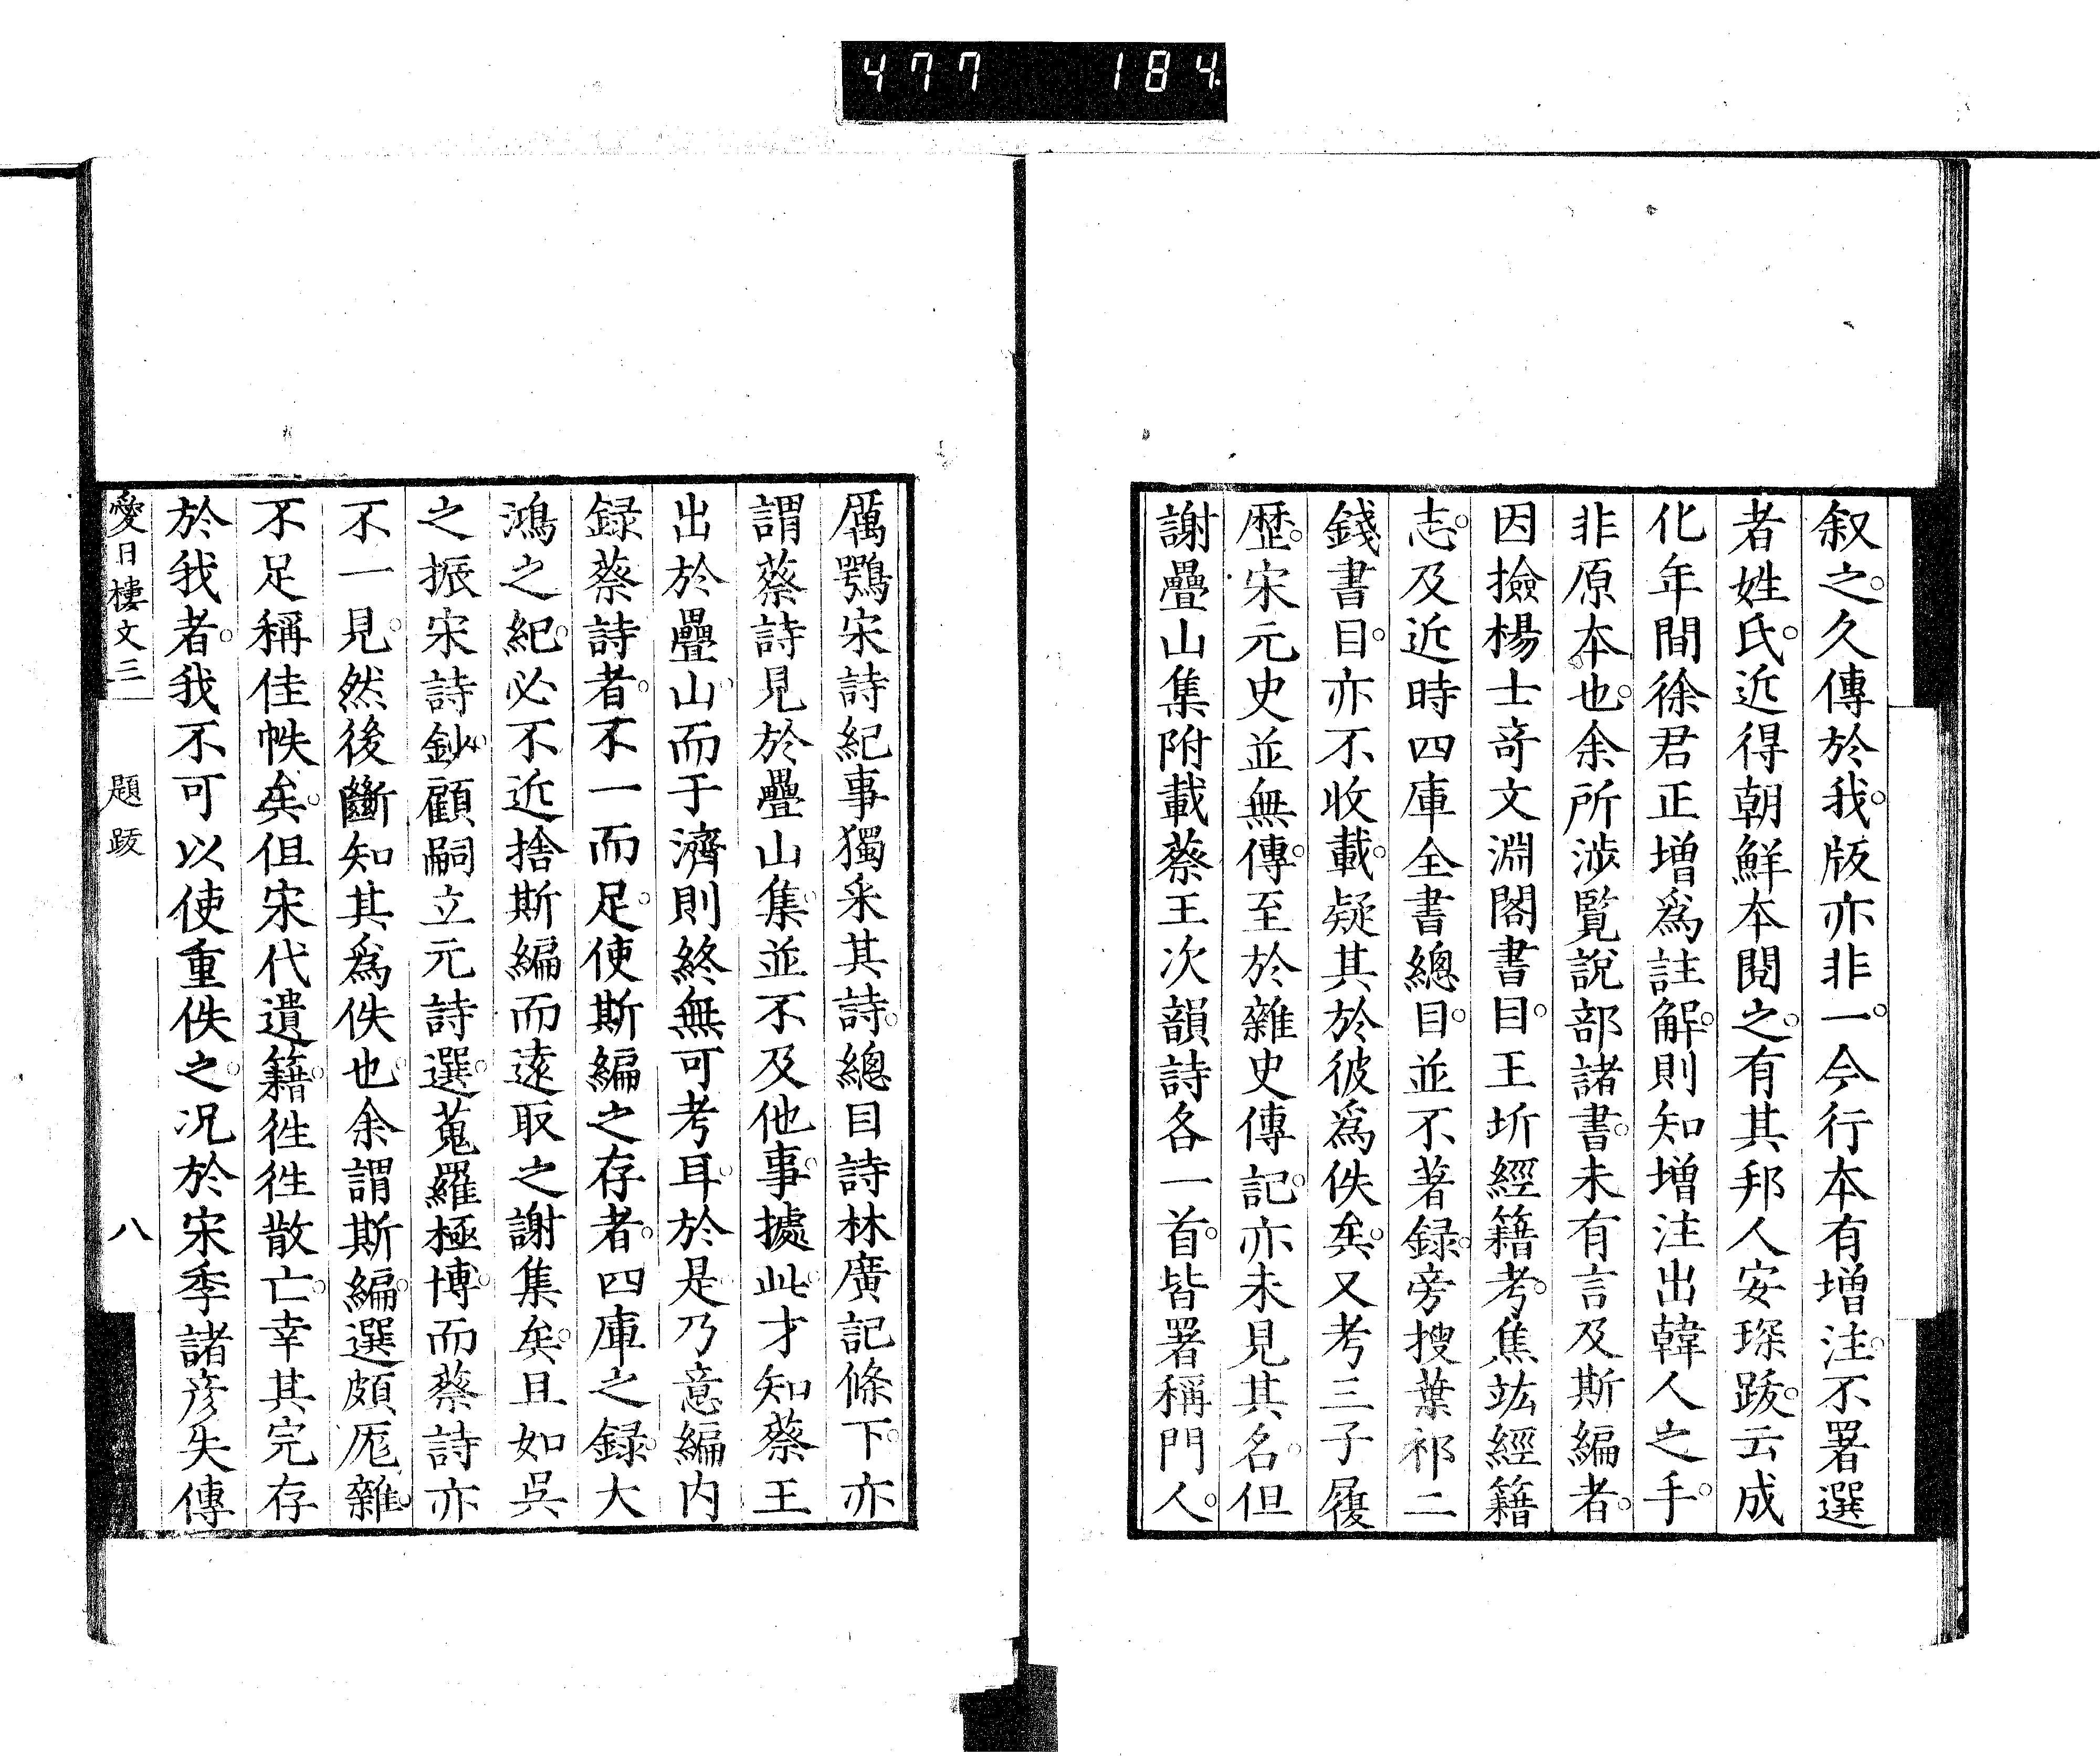 477 184
叙之。久傳於我。版亦非一。今行本有增注。不署選
者姓氏。近得朝鮮本閱之。有其邦人安琛跋。云成
化年間徐君正增爲註解。則知增注出韓人之手。
非原本也。余所涉覽說部諸書。未有言及斯編者。
因撿楊士奇文淵閣書目。王圻經籍考。焦竑經籍
志。及近時四庫全書總目。並不著録。旁搜葉祁二
錢書目。亦不收載。疑其於彼爲佚矣。又考三子履
歷。宋元史並無傳。至於雜史傳記。亦未見其名。但
謝疊山集附載蔡王次韻詩各一首。皆署稱門人。
厲鶚宋詩紀事獨采其詩。總目詩林廣記條下。亦
謂蔡詩見於疊山集。並不及他事。據此。才知蔡王
出於疊山。而于濟則終無可考耳。於是乃意編内
録蔡詩者。不一而足。使斯編之存者。四庫之録。大
鴻之紀。必不近捨斯編而遠取之謝集矣。且如吳
之振宋詩鈔。顧嗣立元詩選。蒐羅極博。而蔡詩亦
不一見。然後斷知其爲佚也。余謂斯編。選頗厖雜。
不足稱佳帙矣。但宋代遺籍。徃徃散亡。幸其完存
於我者。我不可以使重佚之。况於宋季諸彦失傳
愛日樓文三 題跋 八